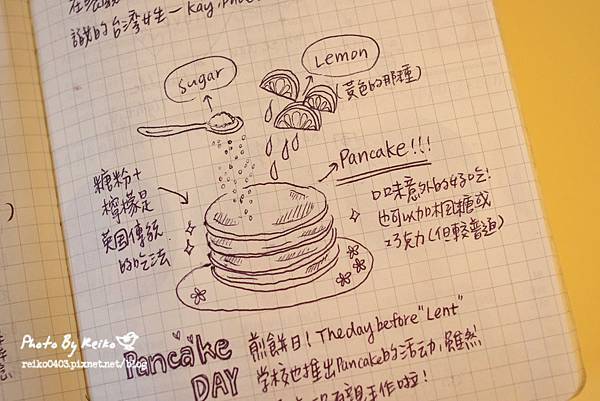 識的台灣女生一 Kay,
Sugar
Lemon
(黃色的那種)
Pancake!!!
糖粉+
檸檬是
英國傳統
的吃法
口味意外的好吃!
也可以加楓糖或
巧克力(但較普通)
Photo By Reiko
reiko0403.pixnet.net/blog
Pancake
DAY
煎餅日! The day before "Lent"
學校也推出Pancake的活動,雖然